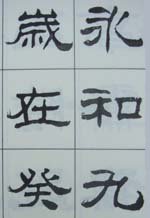 永和九
歲在癸